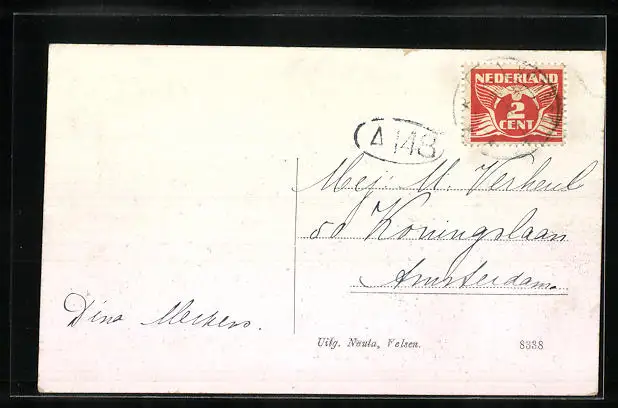 NEDERLAND
2
CENT
A 148
Mej. M. Verheul
50 Koningslaan
Amsterdam.
Dina
Uitg. Nauta, Velsen. 8338